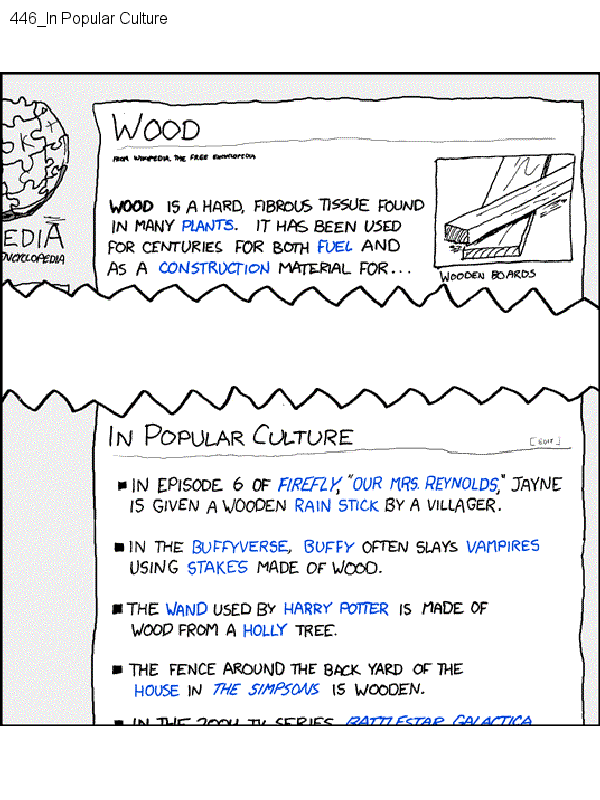 446_In Popular Culture
WOOD
FROM WIKIPEDIA, THE FREE
WOOD IS A HARD, FIBROUS TISSUE FOUND
IN MANY PLANTS. IT HAS BEEN USED
FOR CENTURIES FOR BOTH FUEL AND
AS A CONSTRUCTION MATERIAL FOR...
EDIA
NCYCLOPEDIA
WOODEN BOARDS
IN POPULAR CULTURE
[EDIT]
IN EPISODE 6 OF FIREFLY, "OUR MRS. REYNOLDS," JAYNE
IS GIVEN A WOODEN RAIN STICK BY A VILLAGER.
IN THE BUFFYVERSE, BUFFY OFTEN SLAYS VAMPIRES
USING STAKES MADE OF WOOD.
THE WAND USED BY HARRY POTTER IS MADE OF
WOOD FROM A HOLLY TREE.
THE FENCE AROUND THE BACK YARD OF THE
HOUSE IN THE SIMPSONS IS WOODEN.
IN THE 2004 TV SERIES BATTLESTAR GALACTICA